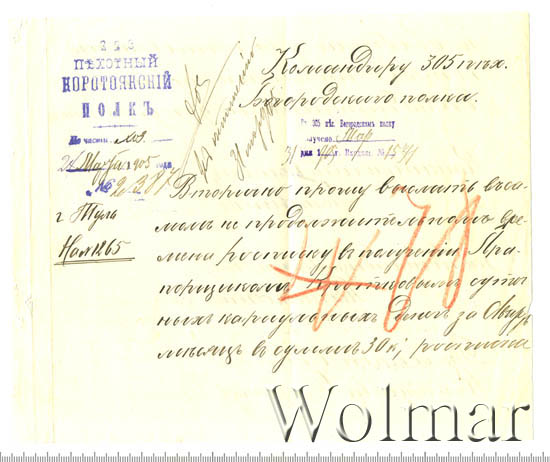 223
ПѢХОТНЫЙ
КОРОТОЯКСКІЙ
ПОЛКЪ
По части хоз.
Марта 1905 года
№
г Тула
Командиру 305 пѣх.
Богородскаго полка.
305 пѣх. Богородскомъ полку
Получено Мар
Вторично прошу выслать въ са-
момъ не продолжительномъ вре-
мени росписку въ полученіи Пра-
порщикомъ Кротковымъ суточ-
ныхъ караульныхъ денегъ за Янвр.
мѣсяцъ въ суммѣ 30 к; росписка
Wolmar